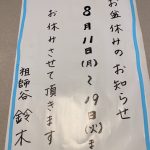 お盆休みのお知らせ
8月11日(月)〜19日(火)ま
お休みさせて頂きます
祖師谷 鈴木